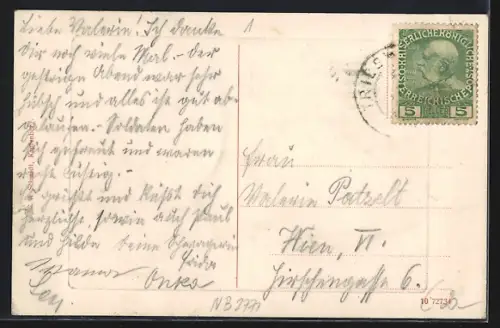 Liebe Valerie! Ich danke
Dir noch viele Mal. - der
gestrigen Abend war sehr
hübsch und alles ist gut ab-
gelaufen. - Soldaten haben
sich gefreut und waren
recht lustig. -
Es grüsst und küsst dich
herzlichst sowie auch Paul
und Hilde deine Schwägerin
Frida
Mama Onka
1
TRIES
KAISERLICHE KÖNIGLICHE
ÖSTERREICHISCHE POST
5 5
Frau
Valerie Patzelt
Wien, VI.
Hirschengasse 6.
NB 3771
10 72734